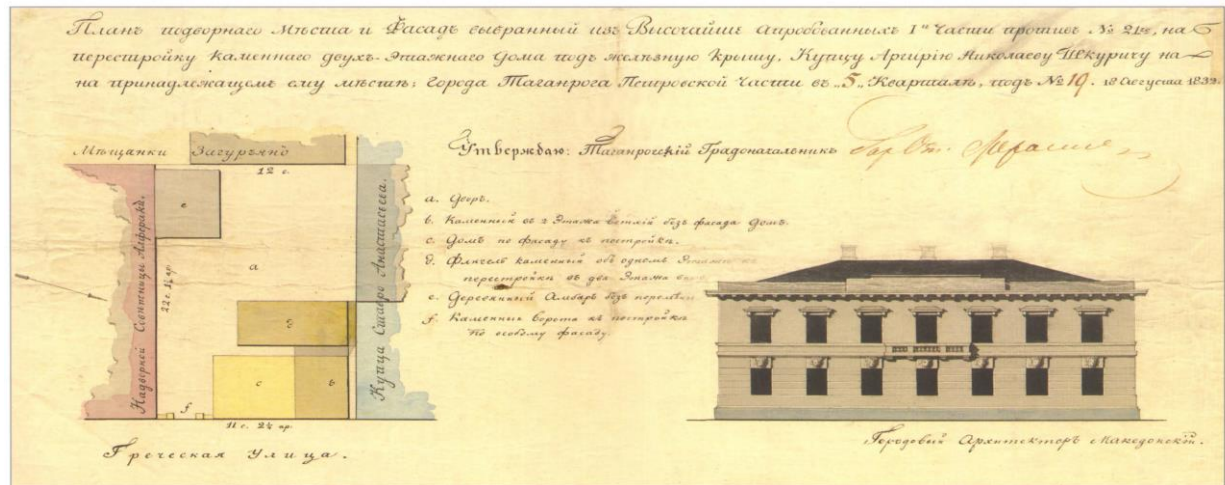 Планъ подворнаго Мѣста и Фасадъ выбранный изъ Высочайше Апробованныхъ Iй Части противъ № 21го, на
перестройку каменнаго двухъ-Этажнаго дома подъ желѣзную крышу, Купцу Аргирію Николаеву Шкуриту на
на принадлежащемъ ему мѣстѣ; города Таганрога Петровской Части въ „5„ Кварталѣ, подъ № 19. 18 Августа 1839.
Утверждаю: Таганрогскій Градоначальникъ
Мѣщанки Загурьянъ
12 с.
Надворной Совѣтницы Алфераки.
22 с. 1¼ ар.
Купца Ставро Анастасьева.
e
a
g
c
b
f
11 с. 2¼ ар.
Греческая Улица.
a. Дворъ.
b. Каменный въ 2 Этажа безъ фасада Домъ.
c. Домъ по фасаду къ постройкѣ.
д. Флигель каменный объ одномъ Этажѣ къ
перестройкѣ въ два Этажа
e. Деревянный Амбаръ безъ перемѣны
f. Каменные Ворота къ постройкѣ
по особому фасаду.
Городовый Архитекторъ Македонскій.